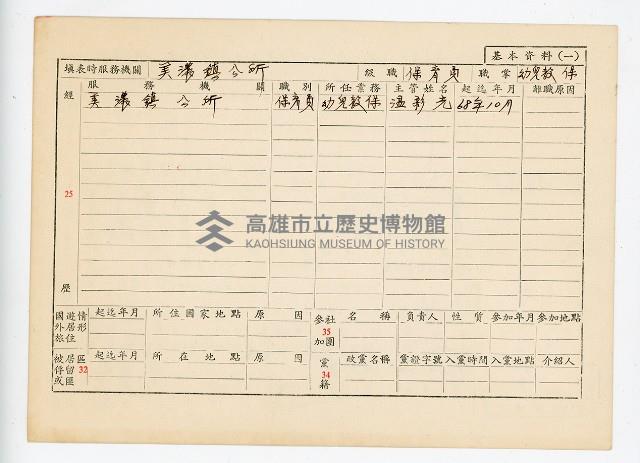 基本資料(一)
填表時服務機關 美濃鎮公所 級職 保育員 職掌 幼兒教保
經 25 歷
服務機關 職別 所任業務 主管姓名 起迄年月 離職原因
美濃鎮公所 保育員 幼兒教保 溫彩光 68年10月
高雄市立歷史博物館
KAOHSIUNG MUSEUM OF HISTORY
國外旅遊居住情形 起迄年月 所住國家地點 原因
參加社團 35 名稱 負責人 性質 參加年月 參加地點
被俘或居留匪區 32 起迄年月 所在地點 原因
黨籍 34 政黨名稱 黨證字號 入黨時間 入黨地點 介紹人